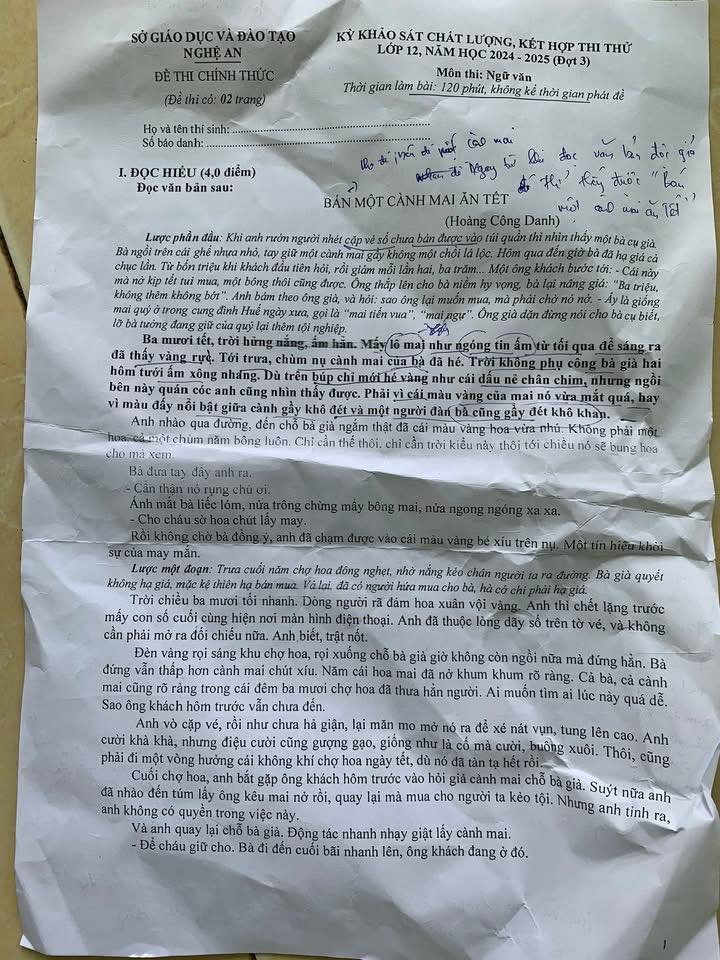 SỞ GIÁO DỤC VÀ ĐÀO TẠO
NGHỆ AN
ĐỀ THI CHÍNH THỨC
(Đề thi có: 02 trang)
KỲ KHẢO SÁT CHẤT LƯỢNG, KẾT HỢP THI THỬ
LỚP 12, NĂM HỌC 2024 - 2025 (Đợt 3)
Môn thi: Ngữ văn
Thời gian làm bài: 120 phút, không kể thời gian phát đề
Họ và tên thí sinh: ..........................................
Số báo danh: ..........................................
văn bản độc giả
thấy được "Bán
ăn Tết"
I. ĐỌC HIỂU (4,0 điểm)
Đọc văn bản sau:
BÁN MỘT CÀNH MAI ĂN TẾT
(Hoàng Công Danh)
Lược phần đầu: Khi anh rướn người nhét cặp vé số chưa bán được vào túi quần thì nhìn thấy một bà cụ già.
Bà ngồi trên cái ghế nhựa nhỏ, tay giữ một cành mai gầy không một chồi lá lộc. Hôm qua đến giờ bà đã hạ giá cả
chục lần. Từ bốn triệu khi khách đầu tiên hỏi, rồi giảm mỗi lần hai, ba trăm... Một ông khách bước tới: - Cái này
mà nở kịp tết tui mua, một bông thôi cũng được. Ông thắp lên cho bà niềm hy vọng, bà lại nâng giá: "Ba triệu,
không thêm không bớt". Anh bám theo ông già, và hỏi: sao ông lại muốn mua, mà phải chờ nó nở. - Ấy là giống
mai quý ở trong cung đình Huế ngày xưa, gọi là "mai tiến vua", "mai ngự". Ông già dặn đừng nói cho bà cụ biết,
lỡ bà tưởng đang giữ của quý lại thêm tội nghiệp.
Ba mươi tết, trời hửng nắng, ấm hẳn. Mấy lô mai như ngóng tin ấm từ tối qua để sáng ra
đã thấy vàng rực. Tới trưa, chùm nụ cành mai của bà đã hé. Trời không phụ công bà già hai
hôm tưới ấm xông nhang. Dù trên búp chỉ mới hé vàng như cái dấu nẻ chân chim, nhưng ngồi
bên này quán cóc anh cũng nhìn thấy được. Phải vì cái màu vàng của mai nó vừa mắt quá, hay
vì màu đấy nổi bật giữa cành gầy khô đét và một người đàn bà cũng gầy đét khô khan.
Anh nhào qua đường, đến chỗ bà già ngắm thật đã cái màu vàng hoa vừa nhú. Không phải một
hoa, cả một chùm năm bông luôn. Chỉ cần thế thôi, chỉ cần trời kiểu này thôi tới chiều nó sẽ bung hoa
cho mà xem.
Bà đưa tay đẩy anh ra.
- Cẩn thận nó rụng chú ơi.
Ánh mắt bà liếc lóm, nửa trông chừng mấy bông mai, nửa ngong ngóng xa xa.
- Cho cháu sờ hoa chút lấy may.
Rồi không chờ bà đồng ý, anh đã chạm được vào cái màu vàng bé xíu trên nụ. Một tín hiệu khởi
sự của may mắn.
Lược một đoạn: Trưa cuối năm chợ hoa đông nghẹt, nhờ nắng kéo chân người ta ra đường. Bà già quyết
không hạ giá, mặc kệ thiên hạ bán mua. Vả lại, đã có người hứa mua cho bà, hà cớ chi phải hạ giá.
Trời chiều ba mươi tối nhanh. Dòng người rã đám hoa xuân vội vàng. Anh thì chết lặng trước
mấy con số cuối cùng hiện nơi màn hình điện thoại. Anh đã thuộc lòng dãy số trên tờ vé, và không
cần phải mở ra đối chiếu nữa. Anh biết, trật nốt.
Đèn vàng rọi sáng khu chợ hoa, rọi xuống chỗ bà già giờ không còn ngồi nữa mà đứng hẳn. Bà
đứng vẫn thấp hơn cành mai chút xíu. Năm cái hoa mai đã nở khum khum rõ ràng. Cả bà, cả cành
mai cũng rõ ràng trong cái đêm ba mươi chợ hoa đã thưa hẳn người. Ai muốn tìm ai lúc này quá dễ.
Sao ông khách hôm trước vẫn chưa đến.
Anh vò cặp vé, rồi như chưa hả giận, lại mằn mo mở nó ra để xé nát vụn, tung lên cao. Anh
cười khà khà, nhưng điệu cười cũng gượng gạo, giống như là cố mà cười, buông xuôi. Thôi, cũng
phải đi một vòng hưởng cái không khí chợ hoa ngày tết, dù nó đã tàn tạ hết rồi.
Cuối chợ hoa, anh bắt gặp ông khách hôm trước vào hỏi giá cành mai chỗ bà già. Suýt nữa anh
đã nhào đến túm lấy ông kêu mai nở rồi, quay lại mà mua cho người ta kẻo tội. Nhưng anh tỉnh ra,
anh không có quyền trong việc này.
Và anh quay lại chỗ bà già. Động tác nhanh nhạy giật lấy cành mai.
- Để cháu giữ cho. Bà đi đến cuối bãi nhanh lên, ông khách đang ở đó.
1